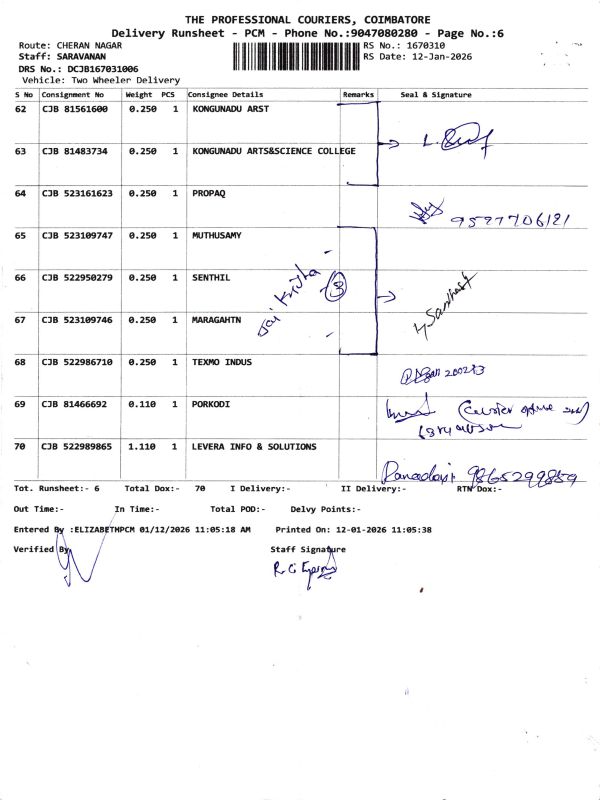 THE PROFESSIONAL COURIERS, COIMBATORE
Delivery Runsheet - PCM - Phone No.:9047080280 - Page No.:6
Route: CHERAN NAGAR RS No.: 1670310
Staff: SARAVANAN RS Date: 12-Jan-2026
DRS No.: DCJB167031006
Vehicle: Two Wheeler Delivery
S No Consignment No Weight PCS Consignee Details Remarks Seal & Signature
62 CJB 81561600 0.250 1 KONGUNADU ARST
63 CJB 81483734 0.250 1 KONGUNADU ARTS&SCIENCE COLLEGE
64 CJB 523161623 0.250 1 PROPAQ
65 CJB 523109747 0.250 1 MUTHUSAMY
66 CJB 522950279 0.250 1 SENTHIL
3
67 CJB 523109746 0.250 1 MARAGAHTN
68 CJB 522986710 0.250 1 TEXMO INDUS
69 CJB 81466692 0.110 1 PORKODI
70 CJB 522989865 1.110 1 LEVERA INFO & SOLUTIONS
9865299859
Tot. Runsheet:- 6 Total Dox:- 70 I Delivery:- II Delivery:- RTN Dox:-
Out Time:- In Time:- Total POD:- Delvy Points:-
Entered By :ELIZABETHPCM 01/12/2026 11:05:18 AM Printed On: 12-01-2026 11:05:38
Verified By Staff Signature